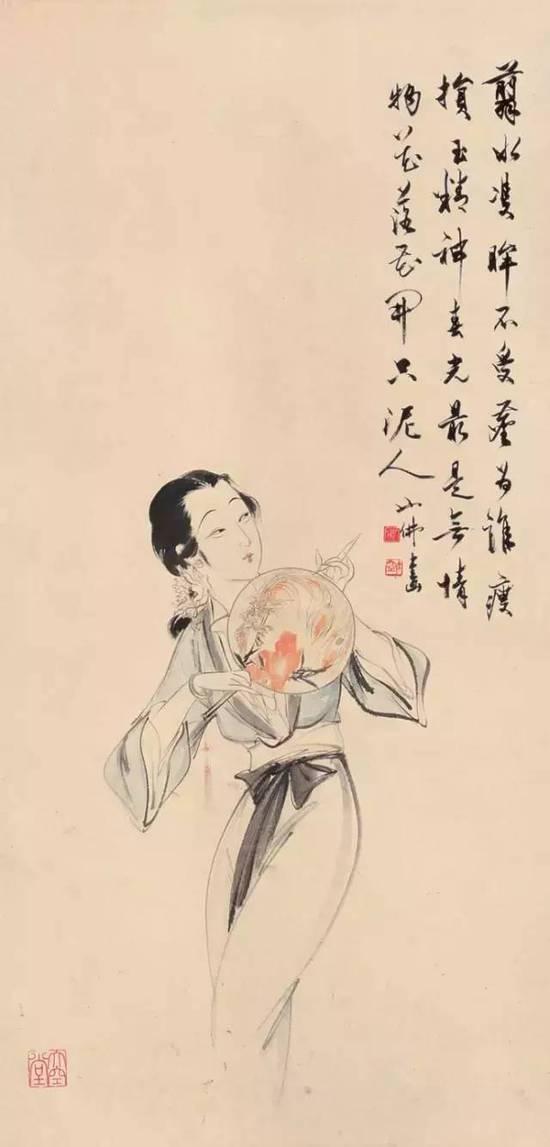 翦水雙眸不受塵為誰瘦
損玉精神春光最是無情
物花落花開只泥人 小佛畫
大空堂